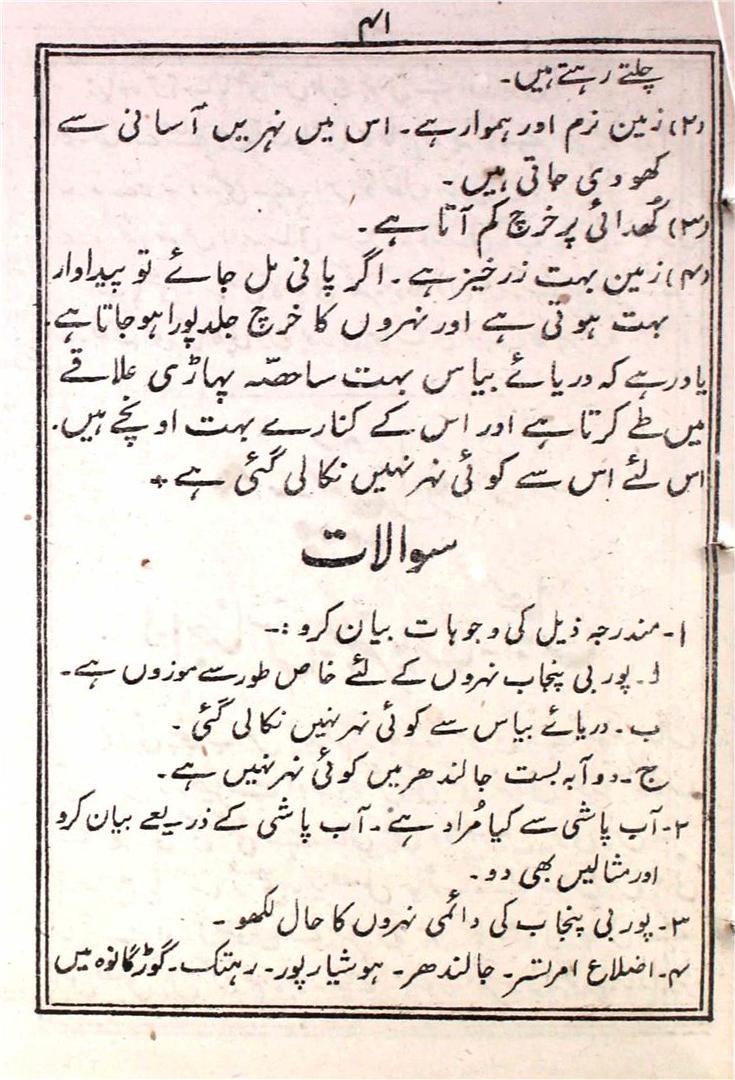 ۴۱
چلتے رہتے ہیں۔
(۲) زمین نرم اور ہموار ہے۔ اس میں نہریں آسانی سے
کھودی جاتی ہیں۔
(۳) کُھدائی پر خرچ کم آتا ہے۔
(۴) زمین بہت زرخیز ہے۔ اگر پانی مل جائے تو پیداوار
بہت ہوتی ہے اور نہروں کا خرچ جلد پورا ہوجاتا ہے۔
یاد رہے کہ دریائے بیاس بہت سا حصّہ پہاڑی علاقے
میں طے کرتا ہے اور اس کے کنارے بہت اونچے ہیں۔
اس لئے اس سے کوئی نہر نہیں نکالی گئی ہے +
سوالات
۱۔ مندرجہ ذیل کی وجوہات بیان کرو :۔
ا۔ پوربی پنجاب نہروں کے لئے خاص طور سے موزوں ہے۔
ب۔ دریائے بیاس سے کوئی نہر نہیں نکالی گئی۔
ج۔ دوآبہ بست جالندھر میں کوئی نہر نہیں ہے۔
۲۔ آب پاشی سے کیا مُراد ہے۔ آب پاشی کے ذریعے بیان کرو
اور مثالیں بھی دو۔
۳۔ پوربی پنجاب کی دائمی نہروں کا حال لکھو۔
۴۔ اضلاع امرتسر۔ جالندھر۔ ہوشیارپور۔ رہتک۔ گوڑگانوہ میں